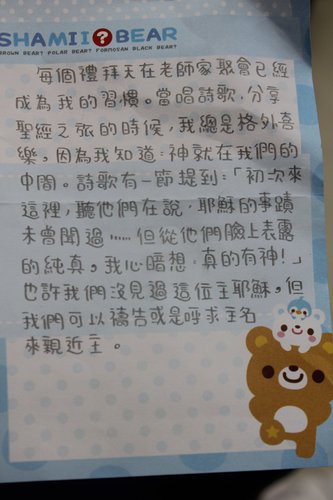 SHAMII?BEAR
BROWN BEAR? POLAR BEAR? FORMOSAN BLACK BEAR?
每個禮拜天在老師家聚會已經
成為我的習慣。當唱詩歌,分享
聖經之張的時候,我總是格外喜
樂,因為我知道:神就在我們的
中間。詩歌有一節提到:「初次來
這裡,聽他們在說,耶穌的事蹟
未曾聞過……但從他們臉上表露
的純真。我心暗想,真的有神!」
也許我們沒見過這位主耶穌,但
我們可以禱告或是呼求主名
來親近主。